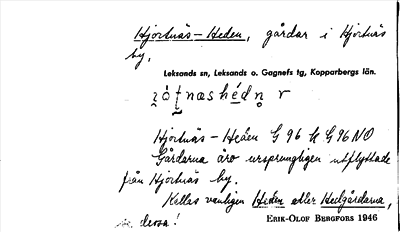 Hjortnäs – Heden, gårdar i Hjortnäs
by,
Leksands sn, Leksands o. Gagnefs tg, Kopparbergs län.
Hjortnäs – Heden G 96 h G 96 NO
Gårdarna äro ursprungligen utflyttade
från Hjortnäs by.
Kallas vanligen Heden eller Hedgårdarna,
dessa!
ERIK-OLOF BERGFORS 1946